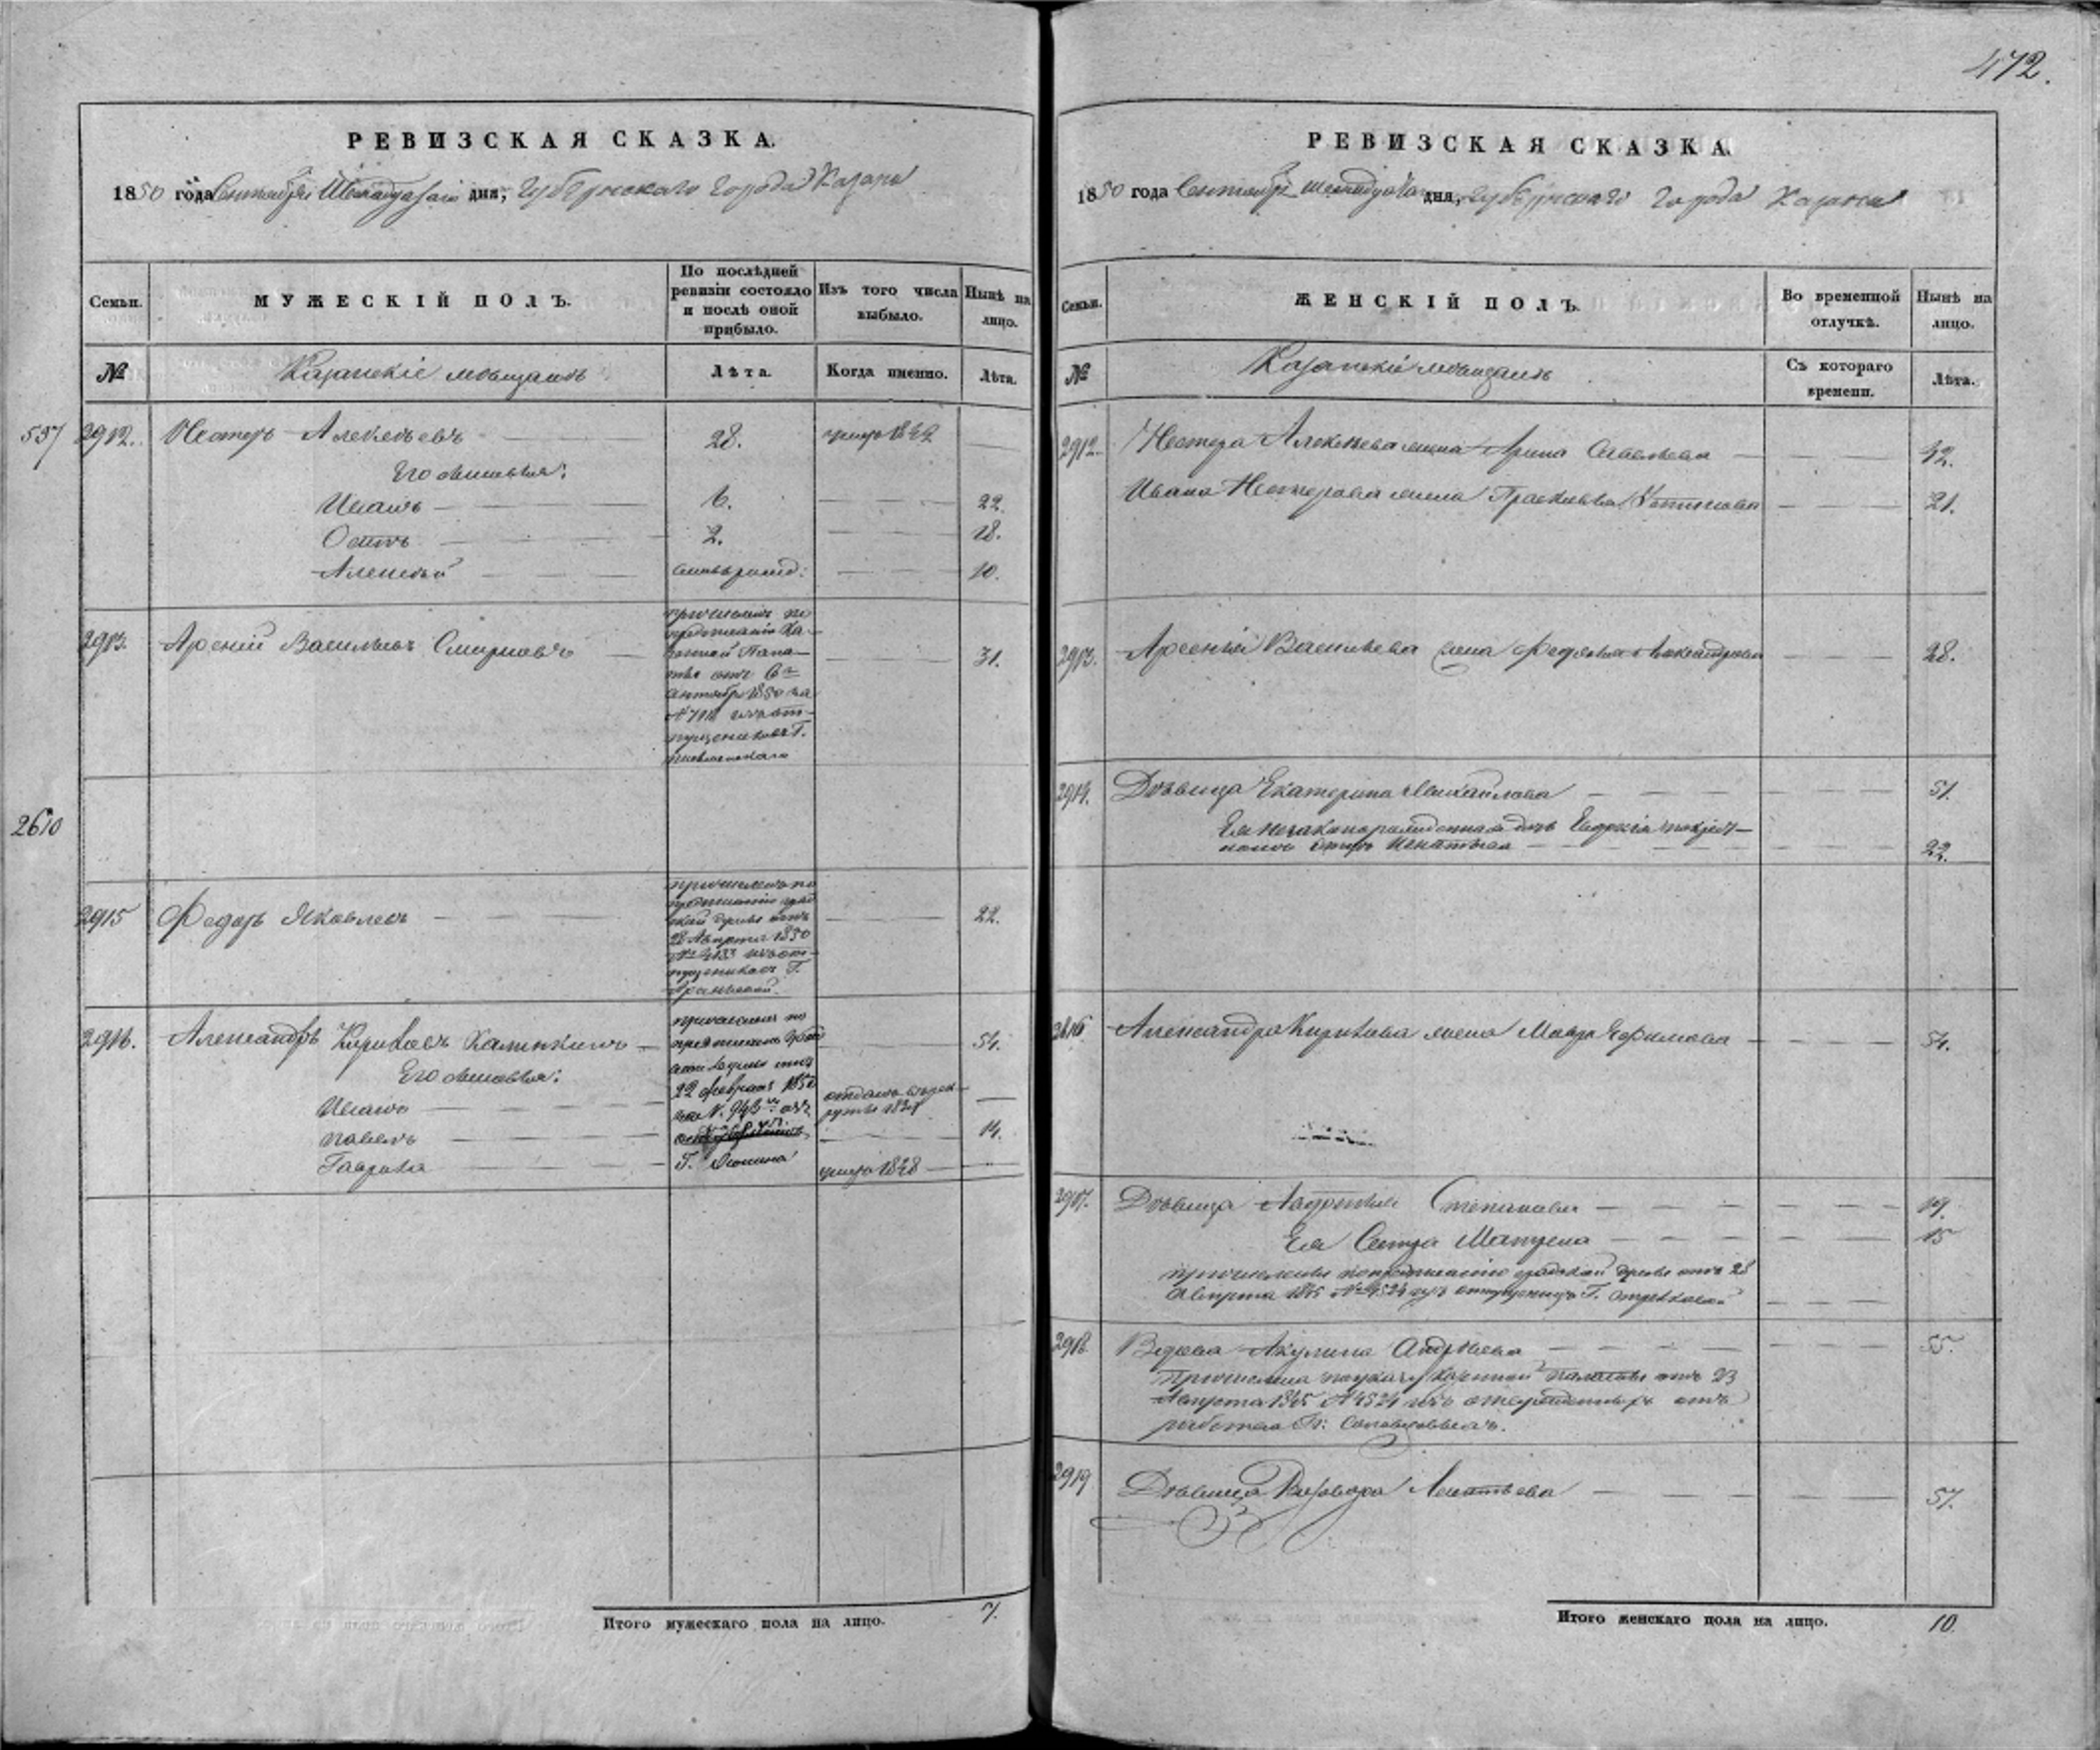 472.
РЕВИЗСКАЯ СКАЗКА.
1850 года Сентября Шестнадцатаго дня, Губернскаго города Казани
Семьи.
МУЖЕСКІЙ ПОЛЪ.
По послѣдней
ревизіи состояло
и послѣ оной
прибыло.
Изъ того числа
выбыло.
Нынѣ на
лицо.
№
Казанскіе мѣщане
Лѣта.
Когда именно.
Лѣта.
537 2912. Нестеръ Алексѣевъ 28. умеръ 1842
Его сыновья:
Иванъ 6. 22.
Осипъ 2. 18.
Алексѣй 10.
2913. Арсеній Васильевъ Смирновъ 31.
причисленъ по
предписанію Ка-
зенной Пала-
ты отъ 6го
сентября 1850 за
№ изъ от-
пущениковъ Г.
2610
2915 Федоръ Яковлевъ 22.
причисленъ по
предписанію град
ской думы отъ
28 Августа 1850
№ 4133 изъ от-
пущениковъ Г.
2916. Александръ Кириловъ Калинкинъ 54.
причисленъ по
предписанію град
ской думы отъ
22 февраля 1850
за №. 943 изъ
Г.
Его сыновья:
Иванъ отданъ въ рек-
руты
Павелъ 14.
Гаврила умеръ 1848
Итого мужескаго пола на лицо. 7.
РЕВИЗСКАЯ СКАЗКА.
1850 года Сентября Шестнадцатаго дня, Губернскаго города Казани
Семьи.
ЖЕНСКІЙ ПОЛЪ.
Во временной
отлучкѣ.
Нынѣ на
лицо.
№
Казанскіе мѣщане
Съ котораго
времени.
Лѣта.
2912. Нестера Алексѣева жена Арина Савельева 42.
Ивана Нестерова жена Прасковья 21.
2913. Арсенія Васильева жена Федосья Александрова 28.
2914. Дѣвица Екатерина Михайлова 51.
Ея незаконорожденная дочь Евдокія по крест-
ному отцу Игнатьева 22.
2916 Александра Кирилова жена Мавра Ефимова 54.
2917. Дѣвица Степанова 19.
Ея Сестра Матрена 15
причислены по предписанію градской думы отъ 28
Августа 1845 № 4524 изъ отпущеницъ Г.
2918 Вдова Акулина Андрѣева 55.
Причислена по указу Казенной палаты отъ 23
Августа 1845 № 4524 изъ отсужденныхъ отъ
рабства Г.
2919 Дѣвица Варвара Игнатьева 57.
Итого женскаго пола на лицо. 10.